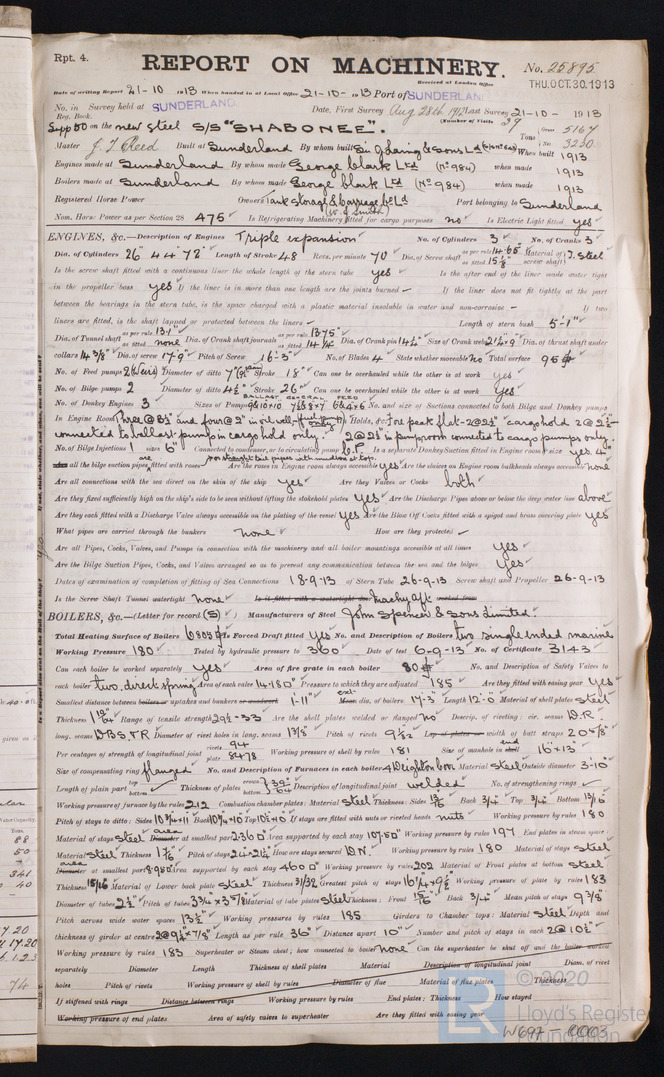 Rpt. 4.
REPORT ON MACHINERY.
No. 25895
Received at London Office THU. OCT. 30. 1913
Date of writing Report 21-10-1913 When handed in at Local Office 21-10-1913 Port of SUNDERLAND
No. in Reg. Book. Survey held at SUNDERLAND Date, First Survey Aug 28th 1912 Last Survey 21-10-1913
(Number of Visits 39
Supp 50 on the new steel S/S "SHABONEE". Tons Gross 5167 Net 3230
Master J. J. Reed Built at Sunderland By whom built Sir J Laing & Sons Ld When built 1913
Engines made at Sunderland By whom made George Clark Ltd (No 984) when made 1913
Boilers made at Sunderland By whom made George Clark Ltd (No 984) when made 1913
Registered Horse Power Owners Tank Storage & Carriage Co Ld Port belonging to Sunderland
Nom. Horse Power as per Section 28 475 Is Refrigerating Machinery fitted for cargo purposes no Is Electric Light fitted yes
ENGINES, &c.—Description of Engines Triple expansion No. of Cylinders 3 No. of Cranks 3
Dia. of Cylinders 26" 44" 72" Length of Stroke 48 Revs. per minute 70 Dia. of Screw shaft as per rule 14.65 as fitted 15⅛" Material of screw shaft I. Steel
Is the screw shaft fitted with a continuous liner the whole length of the stern tube yes Is the after end of the liner made water tight
in the propeller boss yes If the liner is in more than one length are the joints burned – If the liner does not fit tightly at the part
between the bearings in the stern tube, is the space charged with a plastic material insoluble in water and non-corrosive – If two
liners are fitted, is the shaft lapped or protected between the liners – Length of stern bush 5-1"
Dia. of Tunnel shaft as per rule 13.1" as fitted none Dia. of Crank shaft journals as per rule 13.75" as fitted 14¼" Dia. of Crank pin 14½" Size of Crank webs 21½"×9 Dia. of thrust shaft under
collars 14⅜" Dia. of screw 17-9" Pitch of Screw 16-3" No. of Blades 4 State whether moveable no Total surface 95
No. of Feed pumps 2 Diameter of ditto 7" Stroke 18" Can one be overhauled while the other is at work yes
No. of Bilge pumps 2 Diameter of ditto 4½" Stroke 26" Can one be overhauled while the other is at work yes
BALLAST GENERAL FEED
No. of Donkey Engines 3 Sizes of Pumps No. and size of Suctions connected to both Bilge and Donkey pumps
In Engine Room Three @ 3½" and four @ 2" in oil well In Holds, &c. Fore peak flat-2@2½" cargo hold 2@2½"
connected to ballast pump in cargo hold only. 2@2½" in pumproom connected to cargo pumps only.
No. of Bilge Injections 1 sizes 6" Connected to condenser, or to circulating pump C.P. Is a separate Donkey Suction fitted in Engine room & size yes. 4"
Are all the bilge suction pipes fitted with roses Are the roses in Engine room always accessible yes Are the sluices on Engine room bulkheads always accessible none
Are all connections with the sea direct on the skin of the ship yes Are they Valves or Cocks both
Are they fixed sufficiently high on the ship's side to be seen without lifting the stokehold plates yes Are the Discharge Pipes above or below the deep water line above
Are they each fitted with a Discharge Valve always accessible on the plating of the vessel yes Are the Blow Off Cocks fitted with a spigot and brass covering plate yes
What pipes are carried through the bunkers none How are they protected –
Are all Pipes, Cocks, Valves, and Pumps in connection with the machinery and all boiler mountings accessible at all times yes
Are the Bilge Suction Pipes, Cocks, and Valves arranged so as to prevent any communication between the sea and the bilges yes
Dates of examination of completion of fitting of Sea Connections 18-9-13 of Stern Tube 26-9-13 Screw shaft and Propeller 26-9-13
Is the Screw Shaft Tunnel watertight none Is it fitted with a watertight door Machy aft worked from
BOILERS, &c.—(Letter for record (S)) Manufacturers of Steel John Spencer & Sons Limited.
Total Heating Surface of Boilers 6808 Is Forced Draft fitted yes No. and Description of Boilers two single ended marine
Working Pressure 180 Tested by hydraulic pressure to 360 Date of test 6-9-13 No. of Certificate 3143
Can each boiler be worked separately yes Area of fire grate in each boiler 80 No. and Description of Safety Valves to
each boiler two. direct spring Area of each valve 14.180" Pressure to which they are adjusted 185 Are they fitted with easing gear yes
Smallest distance between boilers or uptakes and bunkers or woodwork 1-11" Mean ext dia. of boilers 17-3" Length 12-0" Material of shell plates steel
Thickness Range of tensile strength 29½-33 Are the shell plates welded or flanged no Descrip. of riveting: cir. seams D.R.
long. seams D.B.S.T.R Diameter of rivet holes in long. seams 1⅜" Pitch of rivets 9½" Lap of plates or width of butt straps 20⅝"
Per centages of strength of longitudinal joint rivets 94 plate 84.78 Working pressure of shell by rules 181 Size of manhole in end shell 16"×13"
Size of compensating ring flanged No. and Description of Furnaces in each boiler 4 Deighton bow Material Steel Outside diameter 3-10"
Length of plain part top bottom Thickness of plates crown bottom Description of longitudinal joint welded No. of strengthening rings –
Working pressure of furnace by the rules 212 Combustion chamber plates: Material Steel Thickness: Sides Back ¾" Top ¾" Bottom 13/16"
Pitch of stays to ditto: Sides Back Top If stays are fitted with nuts or riveted heads nuts Working pressure by rules 180
Material of stays Steel area Diameter at smallest part 2.360" Area supported by each stay 107.50" Working pressure by rules 197 End plates in steam space:
Material Steel Thickness Pitch of stays How are stays secured D.N. Working pressure by rules 180 Material of stays Steel
area Diameter at smallest part Area supported by each stay 460" Working pressure by rules 202 Material of Front plates at bottom Steel
Thickness 15/16" Material of Lower back plate Steel Thickness 31/32" Greatest pitch of stays Working pressure of plate by rules 183
Diameter of tubes 2½" Pitch of tubes 3¾"×3⅞" Material of tube plates Steel Thickness: Front 15/16" Back ¾" Mean pitch of stays 9⅜"
Pitch across wide water spaces 13½" Working pressures by rules 185 Girders to Chamber tops: Material Steel Depth and
thickness of girder at centre 2@9¼"×⅞" Length as per rule 36" Distance apart 10" Number and pitch of stays in each 2@10½"
Working pressure by rules 183 Superheater or Steam chest; how connected to boiler none Can the superheater be shut off and the boiler worked
separately Diameter Length Thickness of shell plates Material Description of longitudinal joint Diam. of rivet
holes Pitch of rivets Working pressure of shell by rules Diameter of flue Material of flue plates Thickness
If stiffened with rings Distance between rings Working pressure by rules End plates: Thickness How stayed
Working pressure of end plates Area of safety valves to superheater Are they fitted with easing gear
© 2020
Lloyd's Register
Foundation
W697-0003